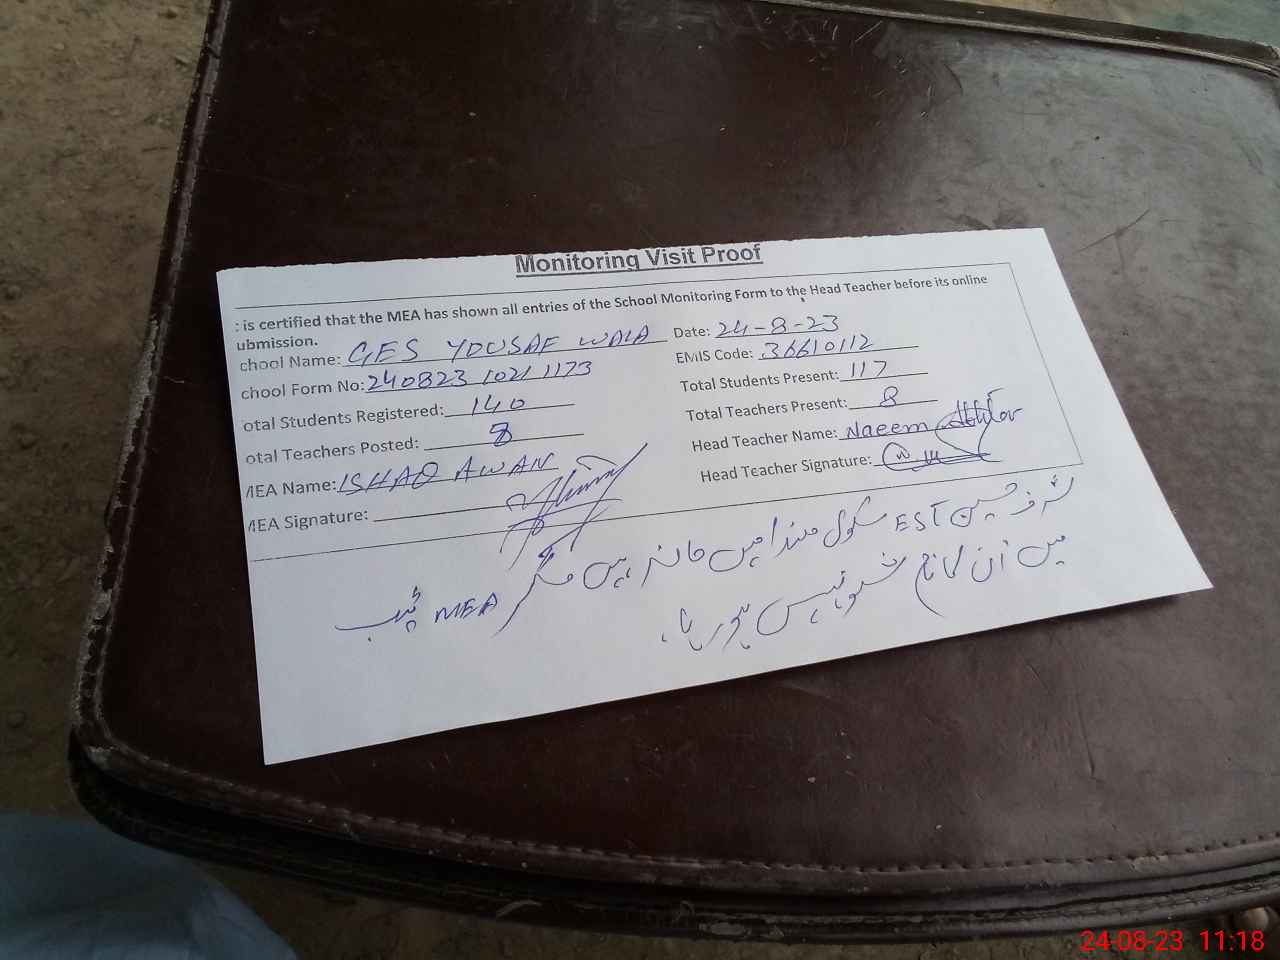 Monitoring Visit Proof
: is certified that the MEA has shown all entries of the School Monitoring Form to the Head Teacher before its online
ubmission.
chool Name: GES YOUSAF WALA Date: 24-8-23
chool Form No: 240823 1021 1173 EMIS Code: 36610112
otal Students Registered: 140 Total Students Present: 117
otal Teachers Posted: 8 Total Teachers Present: 8
MEA Name: ISHAQ AWAN Head Teacher Name: Naeem Akhtar
MEA Signature: Head Teacher Signature:
حسین EST سکول ھذا میں حاضر ہیں مگر MEA ٹیب
میں ان کا نام شو نہیں ہو رہا۔
24-08-23 11:18